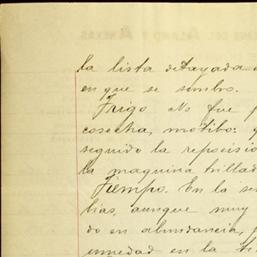 la lista detayada
en que se simbro.
Trigo No fue
cosecha, motibo:
seguido la reposisio
la maquina trillad
Tiempo. En la se
bias, aunque muy
do en abundancia,
umedad en la